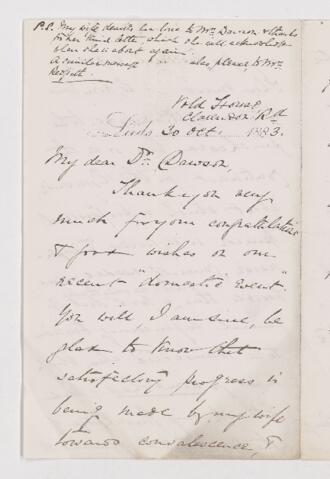 P.S. My wife desires her love to Mrs Dawson & thanks
for her kind letter, which she will acknowledge
when she is about again.
A similar message also, please, to Mrs
Clarendon Rd
Leeds 30 Oct. 1883.
My dear Dr. Dawson,
Thank you very
much for your congratulations
& good wishes on our
recent "domestic event".
You will, I am sure, be
glad to know that
satisfactory progress is
being made by my wife
towards convalescence, &